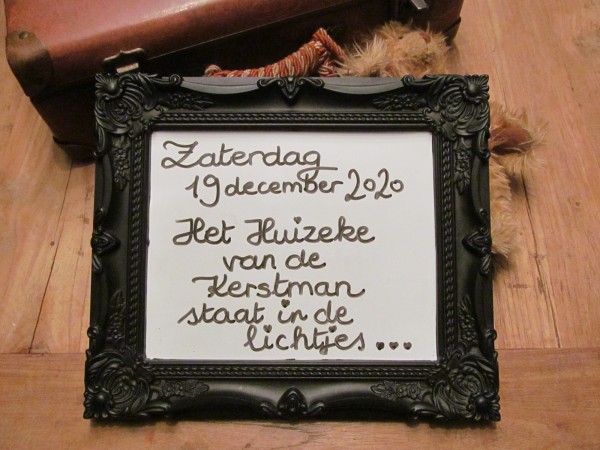 Zaterdag
19 december 2020
Het Huizeke
van de
Kerstman
staat in de
lichtjes...